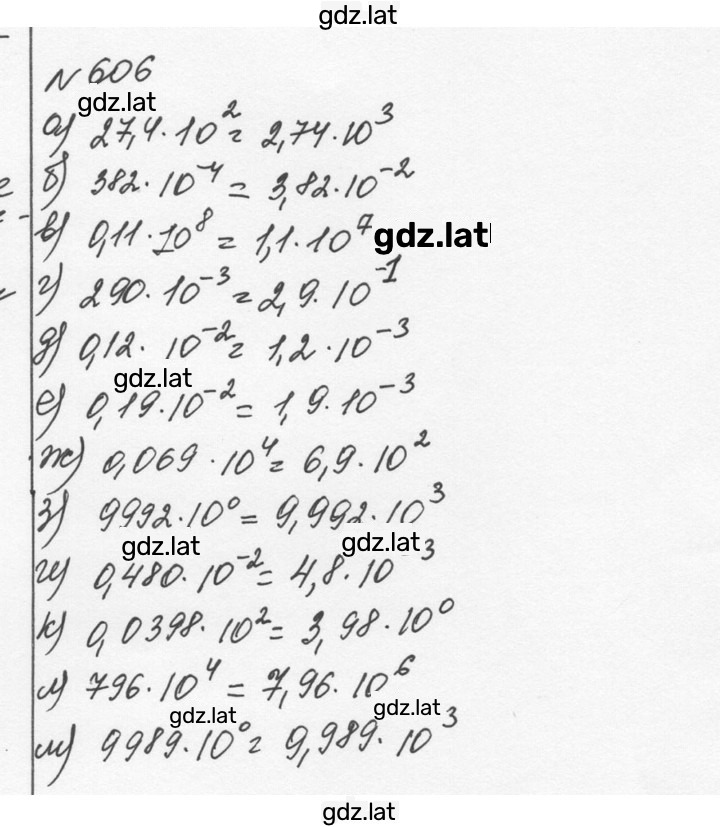 gdz.lat
№ 606
gdz.lat
а) 27,4·10² = 2,74·10³
б) 382·10⁻⁴ = 3,82·10⁻²
в) 0,11·10⁸ = 1,1·10⁷ gdz.lat
г) 290·10⁻³ = 2,9·10⁻¹
д) 0,12·10⁻² = 1,2·10⁻³
gdz.lat
е) 0,19·10⁻² = 1,9·10⁻³
ж) 0,069·10⁴ = 6,9·10²
з) 9992·10⁰ = 9,992·10³
gdz.lat gdz.lat
и) 0,480·10⁻² = 4,8·10⁻³
к) 0,0398·10² = 3,98·10⁰
л) 796·10⁴ = 7,96·10⁶
gdz.lat gdz.lat
м) 9989·10⁰ = 9,989·10³
gdz.lat